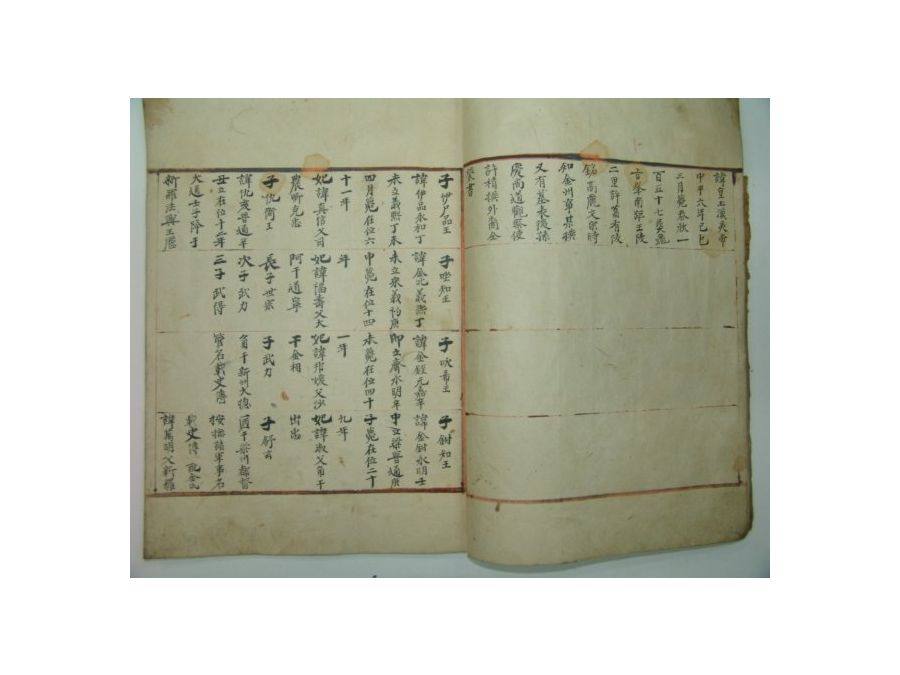 諱皇玉漢灵帝
中平六年己巳
三月薨春秋一
百五十七矣龜
旨峯南距王陵
二里許前有陵
銘高麗文宗時
知金州事某撰
又有墓表後孫
慶尚道觀察使
許積撰外裔金
書
子伊尸品王
諱伊品永和丁
未立義熙丁未
四月薨在位六
十一年
妃諱貞信父司
農卿克忠
子仇衡王
諱仇亥普通辛
丑立在位十二年
大通壬子降于
新羅法興王
子坐知王
諱金叱義熙丁
未立宋義
申薨在位十四
年
妃諱福壽父大
阿干道寧
長子世宗
次子武力
三子武得
子吹希王
諱金銍元嘉辛
卯立齊永明辛
未薨在位四十
一年
妃諱邦媛父沙
干金相
子武力
角干新州大總
管名載史傳
子鉗知王
諱金鉗永明壬
申立梁普通庚
子薨在位二十
九年
妃諱淑父角干
出忠
子舒玄
干梁州都督
按撫諸軍事名
載史傳配金氏
諱萬明父新羅